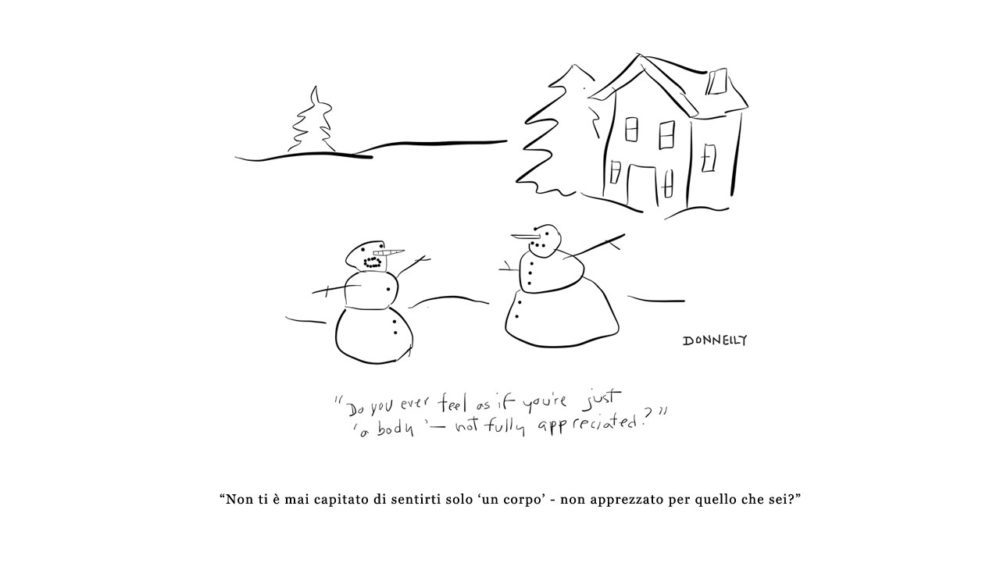 DONNELLY
"Do you ever feel as if you're just
'a body' — not fully appreciated?"
“Non ti è mai capitato di sentirti solo ‘un corpo’ - non apprezzato per quello che sei?”